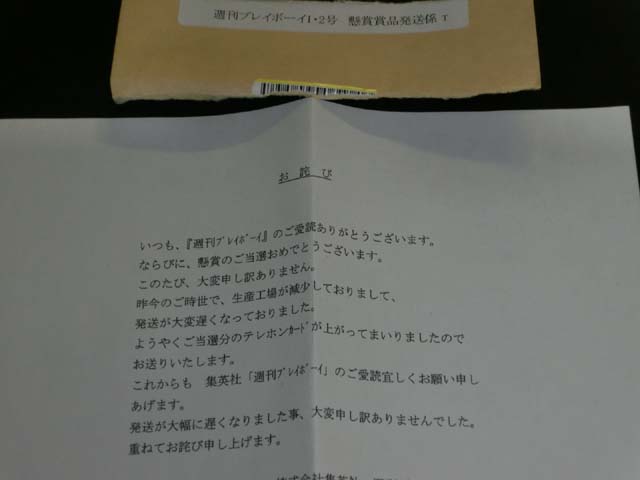 週刊プレイボーイ1・2号 懸賞賞品発送係 T
お詫び
いつも、『週刊ﾌﾟﾚｲﾎﾞｰｲ』のご愛読ありがとうございます。
ならびに、懸賞のご当選おめでとうございます。
このたび、大変申し訳ありません。
昨今のご時世で、生産工場が減少しておりまして、
発送が大変遅くなっておりました。
ようやくご当選分のテレホンｶｰﾄﾞが上がってまいりましたので
お送りいたします。
これからも 集英社「週刊ﾌﾟﾚｲﾎﾞｰｲ」のご愛読宜しくお願い申し
あげます。
発送が大幅に遅くなりました事、大変申し訳ありませんでした。
重ねてお詫び申し上げます。
株式会社集英社